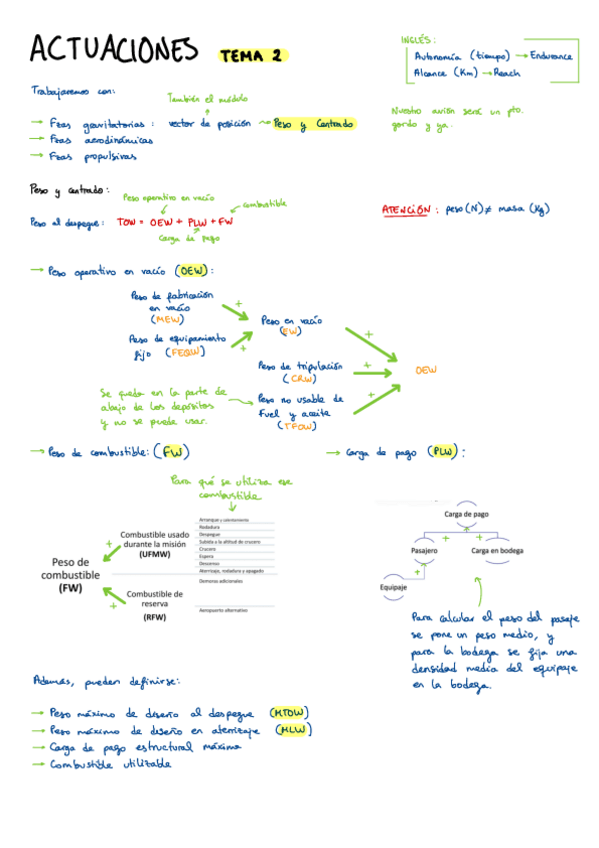 ACTUACIONES TEMA 2
INGLÉS:
Autonomía (tiempo) → Endurance
Alcance (Km) → Reach
Trabajaremos con:
También el módulo
→ Fzas gravitatorias: vector de posición → Peso y Centrado
→ Fzas aerodinámicas
→ Fzas propulsivas
Nuestro avión será un pto.
gordo y ya.
Peso y centrado:
Peso operativo en vacío
combustible
Peso al despegue: TOW = OEW + PLW + FW
Carga de pago
ATENCIÓN: peso (N) ≠ masa (Kg)
→ Peso operativo en vacío (OEW):
Peso de fabricación
en vacío
(MEW)
+
Peso en vacío
(EW)
+
Peso de equipamiento
fijo (FEQW)
+
Peso de tripulación
(CRW)
+
OEW
Se queda en la parte de
abajo de los depósitos
y no se puede usar.
Peso no usable de
Fuel y aceite
(TFOW)
+
→ Peso de combustible: (FW)
→ Carga de pago (PLW):
Para qué se utiliza ese
combustible
Arranque y calentamiento
Rodadura
Despegue
Subida a la altitud de crucero
Crucero
Espera
Descenso
Aterrizaje, rodadura y apagado
Demoras adicionales
Aeropuerto alternativo
Combustible usado
durante la misión
(UFMW)
+
Peso de
combustible
(FW)
+
Combustible de
reserva
(RFW)
Carga de pago
+
+
Pasajero
Carga en bodega
+
Equipaje
Para calcular el peso del pasaje
se pone un peso medio, y
para la bodega se fija una
densidad media del equipaje
en la bodega.
Además, pueden definirse:
→ Peso máximo de diseño al despegue (MTOW)
→ Peso máximo de diseño en aterrizaje (MLW)
→ Carga de pago estructural máxima
→ Combustible utilizable